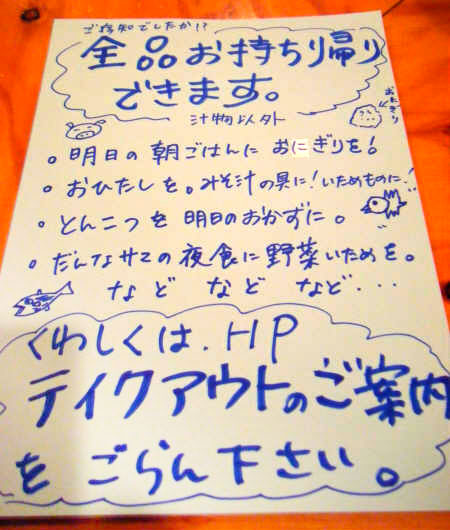 ご存知でしたか!?
全品お持ち帰り
できます。
汁物以外
おにぎり
。明日の朝ごはんにおにぎりを!
。おひたしを。みそ汁の具に!いためものに!
。とんこつを明日のおかずに。
。だんなサマの夜食に野菜いためを。
など など など・・・
くわしくは、HP
テイクアウトのご案内
をごらん下さい。